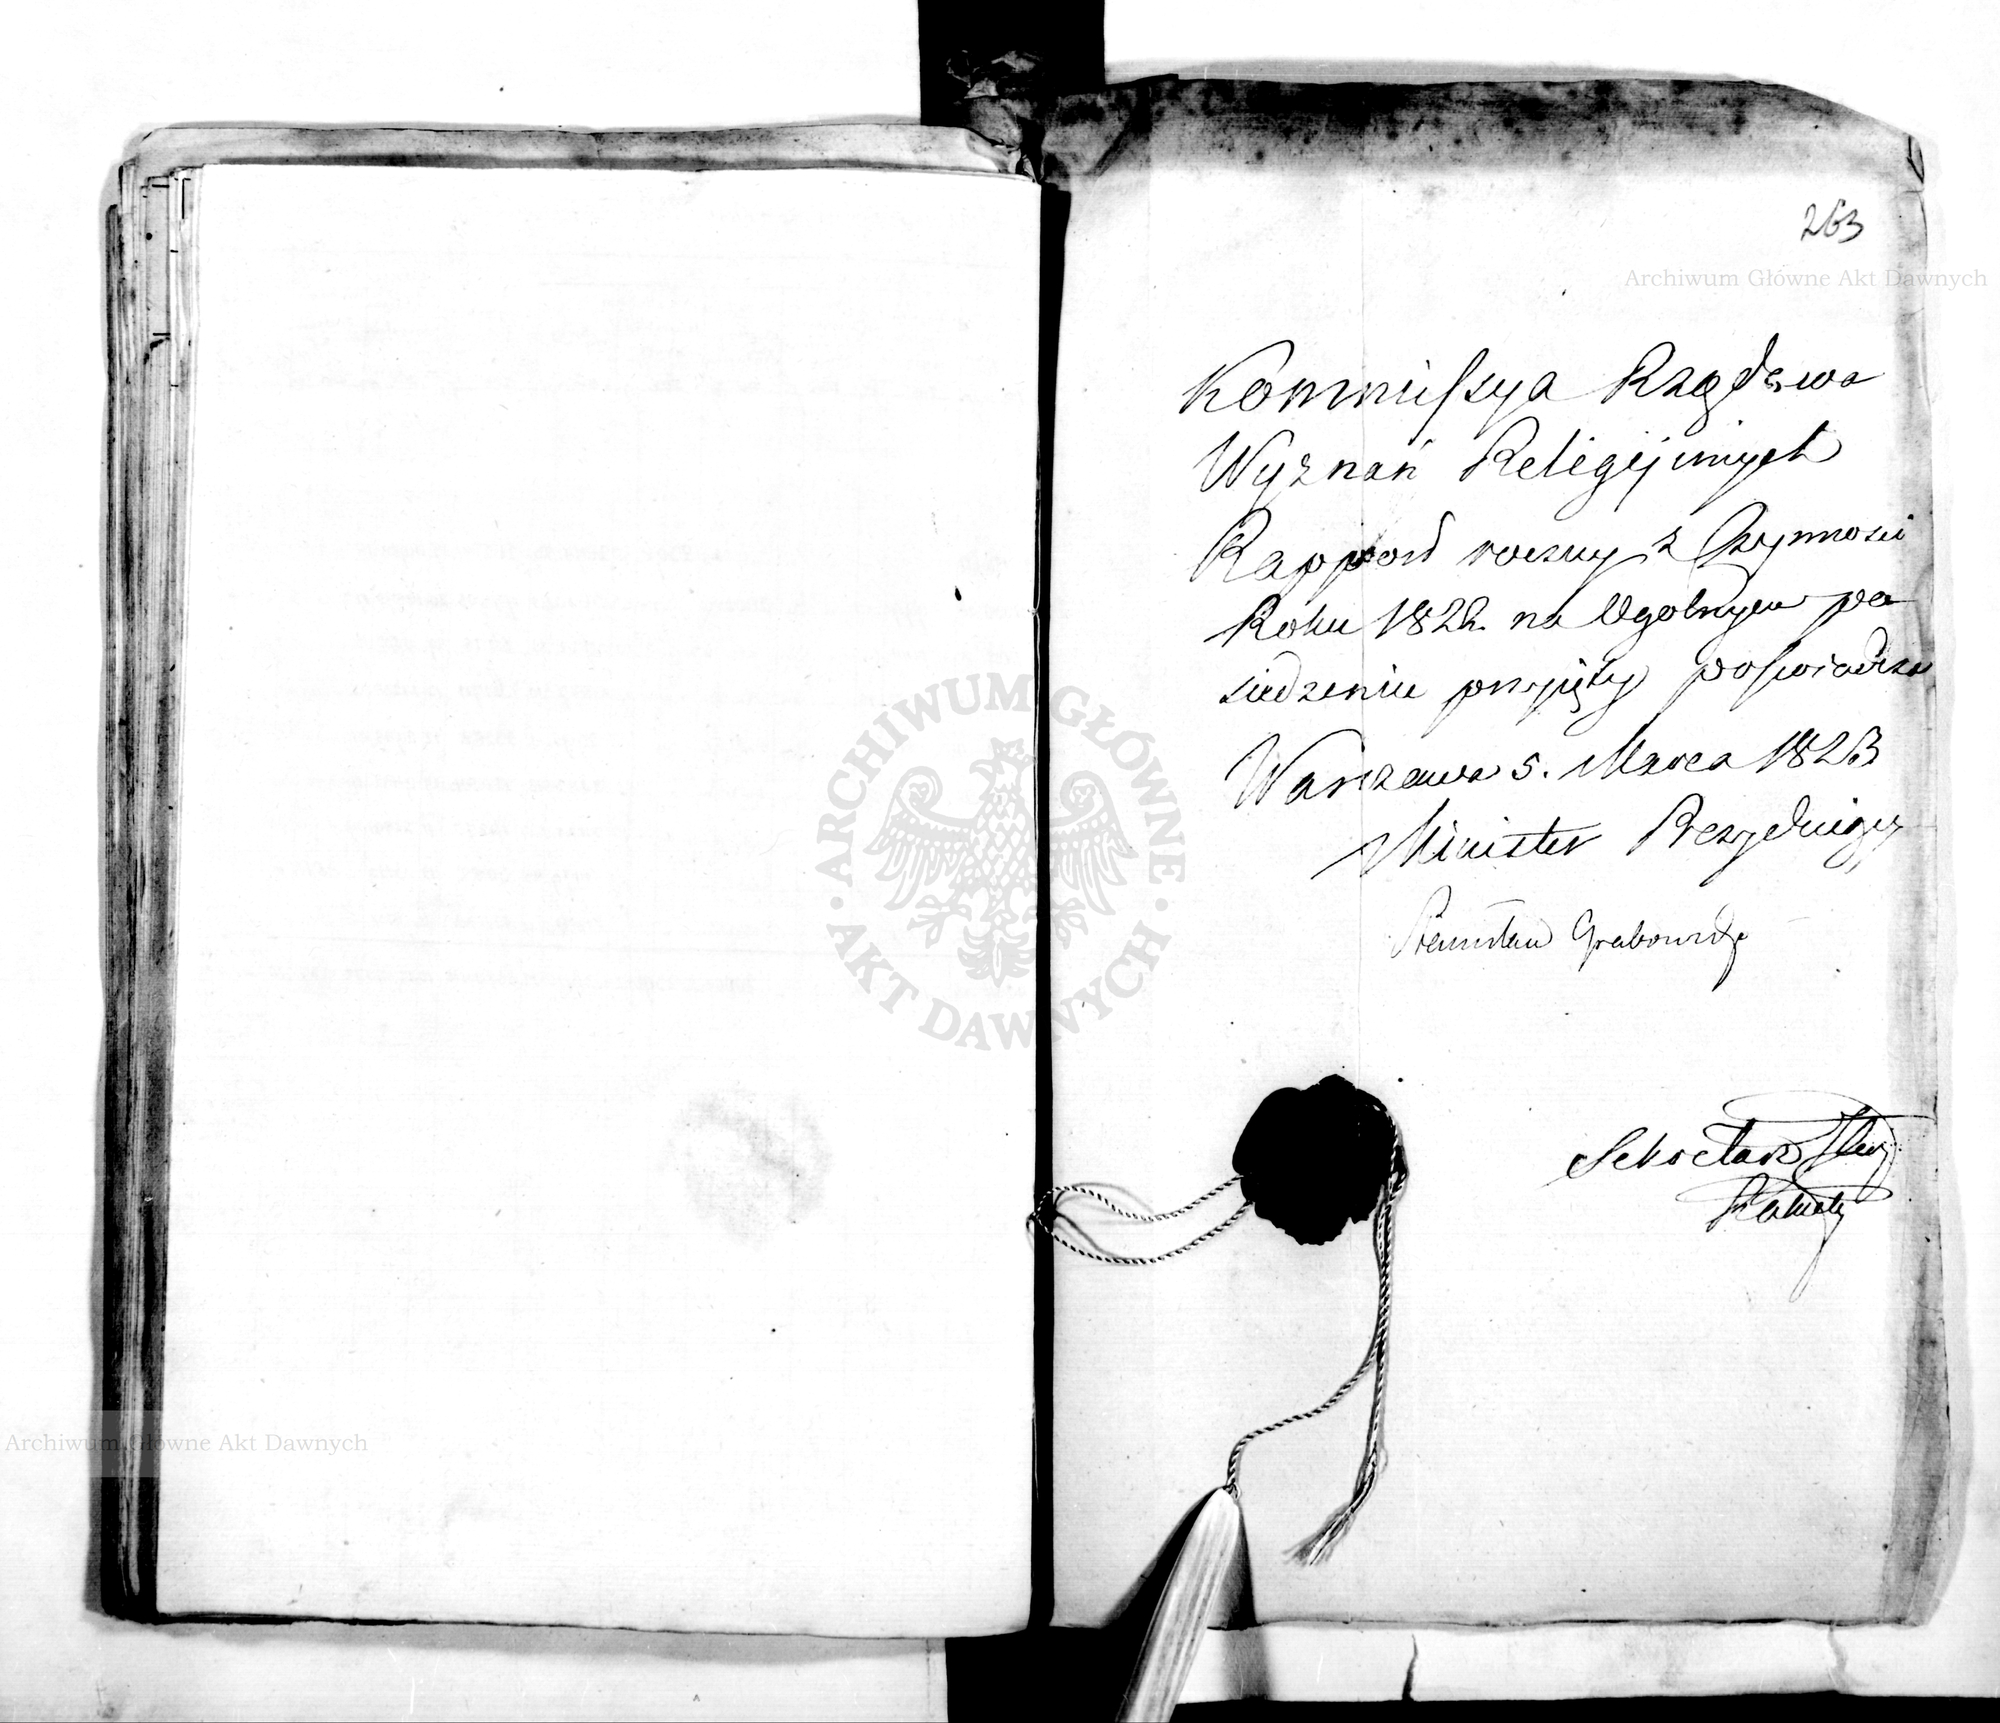 263
Archiwum Główne Akt Dawnych
Kommissya Rządowa
Wyznań Religijnych
Rapport roczny z Czynności
Roku 1822. na Ogolnym po
siedzeniu przyięty poświadcza
Warszawa 5. Marca 1823
Minister Prezyduiący
Stanisław Grabowski
Sekretarz
ARCHIWUM GŁÓWNE AKT DAWNYCH
Archiwum Główne Akt Dawnych